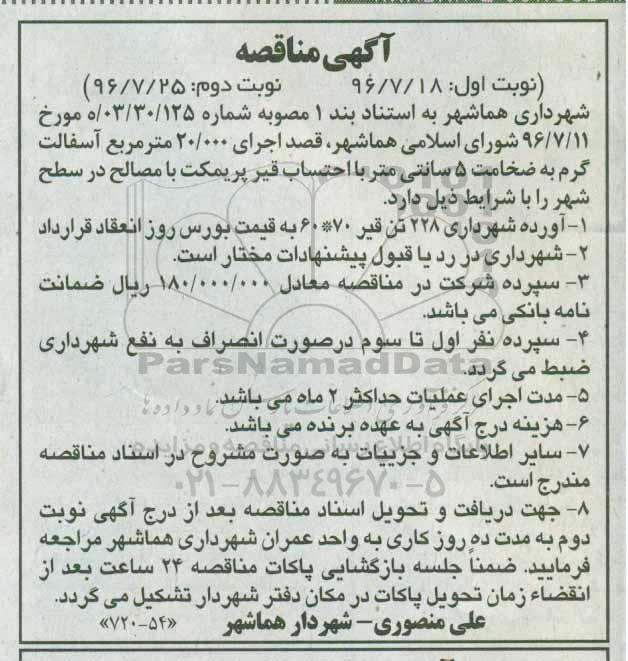 آگهی مناقصه
(نوبت اول: ۹۶/۷/۱۸ نوبت دوم: ۹۶/۷/۲۵)
شهرداری هماشهر به استناد بند ۱ مصوبه شماره ۰۳/۳۰/۱۲۵/ه مورخ
۹۶/۷/۱۱ شورای اسلامی هماشهر، قصد اجرای ۲۰/۰۰۰ مترمربع آسفالت
گرم به ضخامت ۵ سانتی متر با احتساب قیر پریمکت با مصالح در سطح
شهر را با شرایط ذیل دارد.
۱- آورده شهرداری ۲۲۸ تن قیر ۷۰*۶۰ به قیمت بورس روز انعقاد قرارداد
۲- شهرداری در رد یا قبول پیشنهادات مختار است.
۳- سپرده شرکت در مناقصه معادل ۱۸۰/۰۰۰/۰۰۰ ریال ضمانت
نامه بانکی می باشد.
۴- سپرده نفر اول تا سوم درصورت انصراف به نفع شهرداری
ضبط می گردد.
ParsNamadData
۵- مدت اجرای عملیات حداکثر ۲ ماه می باشد.
۶- هزینه درج آگهی به عهده برنده می باشد.
پایگاه اطلاع رسانی مناقصه و مزایده
۷- سایر اطلاعات و جزییات به صورت مشروح در اسناد مناقصه
مندرج است.
۰۲۱-۸۸۳۴۹۶۷۰-۵
۸- جهت دریافت و تحویل اسناد مناقصه بعد از درج آگهی نوبت
دوم به مدت ده روز کاری به واحد عمران شهرداری هماشهر مراجعه
فرمایید. ضمناً جلسه بازگشایی پاکات مناقصه ۲۴ ساعت بعد از
انقضاء زمان تحویل پاکات در مکان دفتر شهردار تشکیل می گردد.
علی منصوری- شهردار هماشهر «۷۲۰-۵۴»